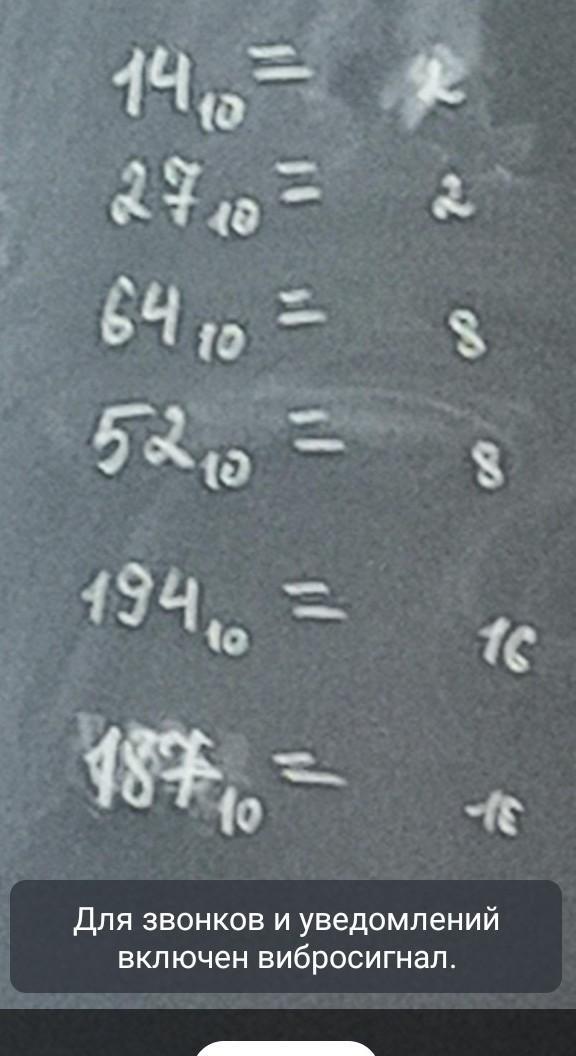 14₁₀ = ₂
27₁₀ = ₂
64₁₀ = ₈
52₁₀ = ₈
194₁₀ = ₁₆
187₁₀ = ₁₆
Для звонков и уведомлений
включен вибросигнал.